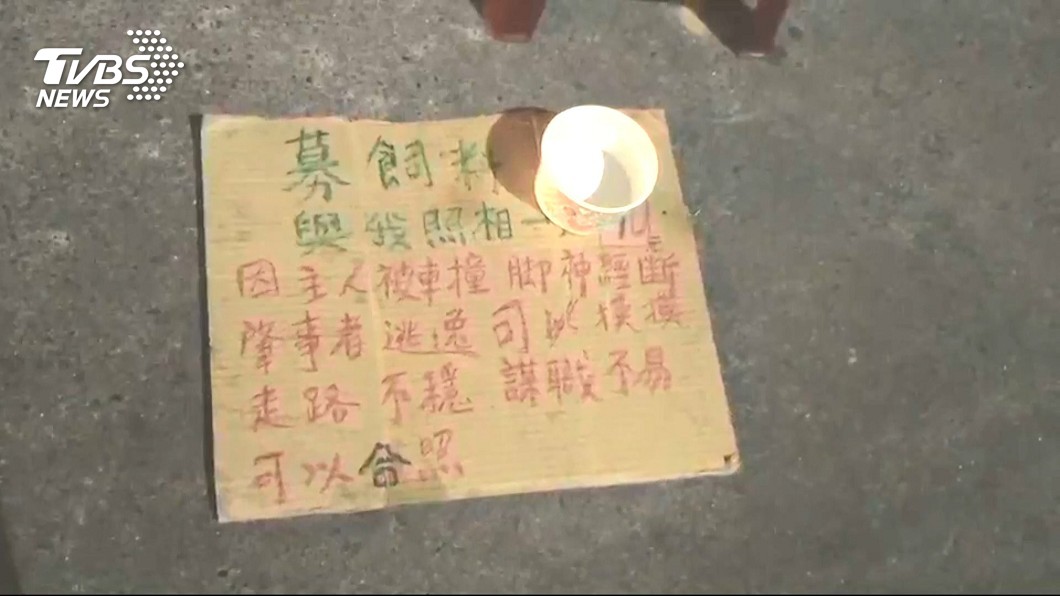 TVBS
NEWS
募飼料
與我照相一
因主人被車撞 脚神經斷
肇事者逃逸 可以摸摸
走路不穩 謀職不易
可以合照